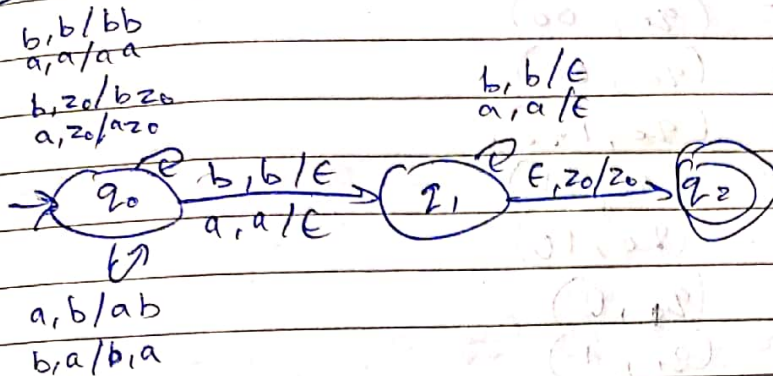 b, b/bb
a, a/aa
b, z₀/bz₀
a, z₀/az₀
b, b/ϵ
a, a/ϵ
q₀
b, b/ϵ
a, a/ϵ
q₁
ϵ, z₀/z₀
q₂
a, b/ab
b, a/b, a